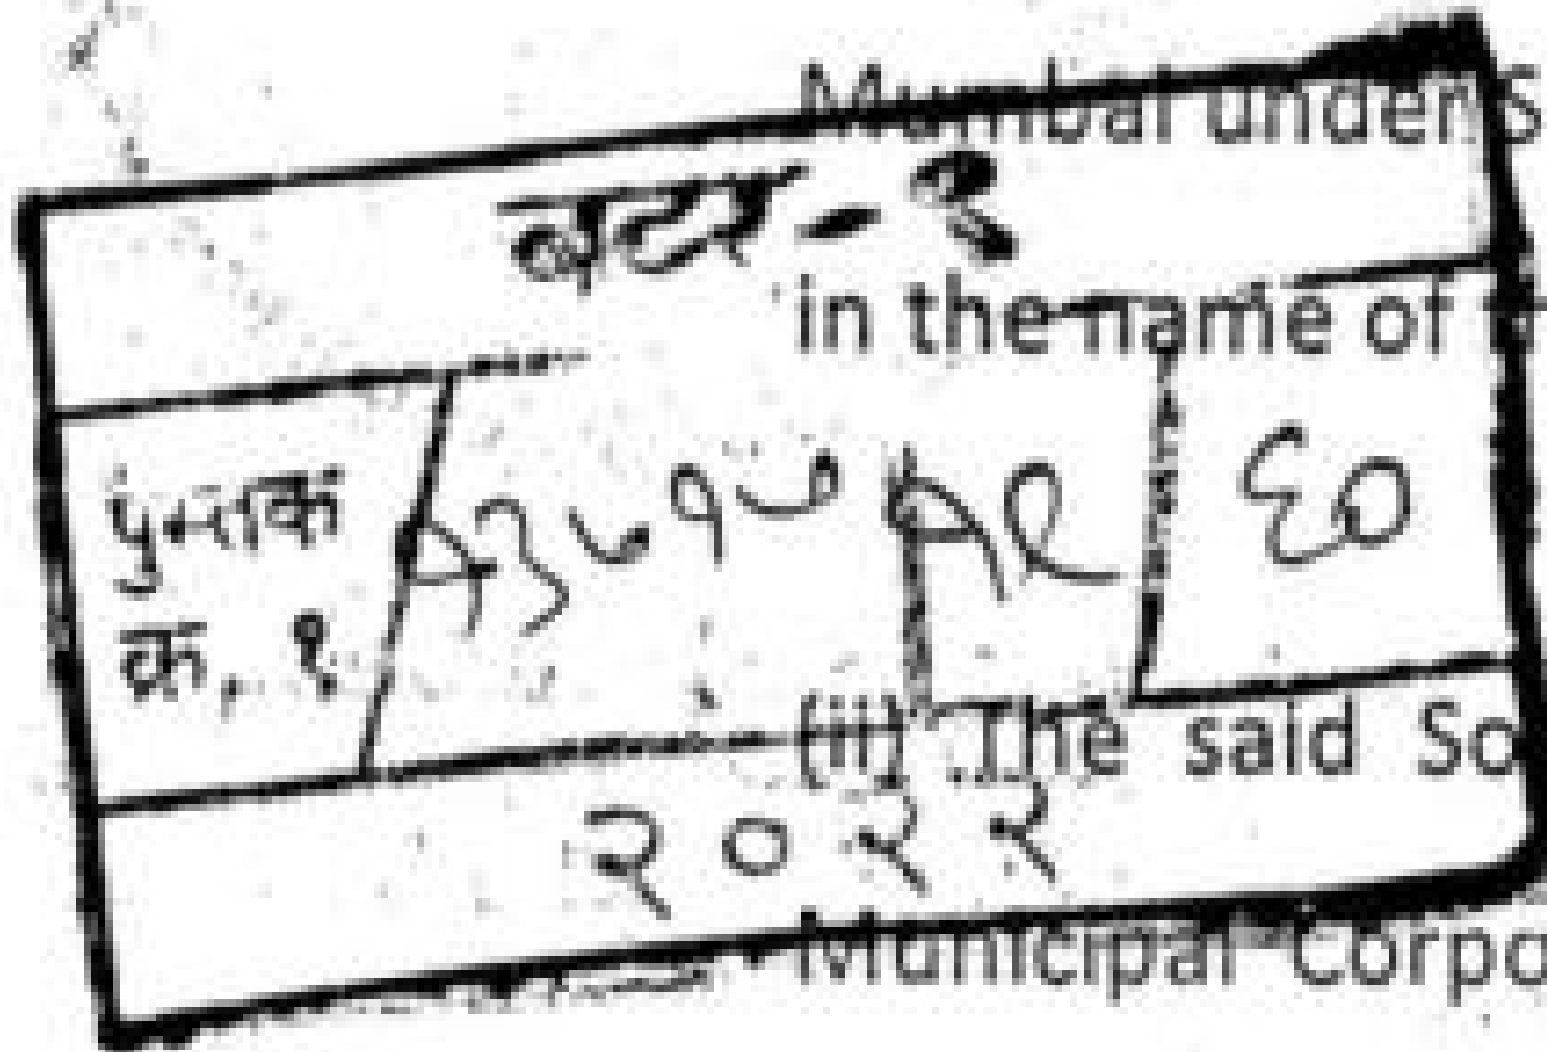 Mumbai under S
बदर - १
in the name of
पुस्तक
क्र. १ ५३७१७ ५९ ६०
(ii) The said So
२०२२
Municipal Corpo